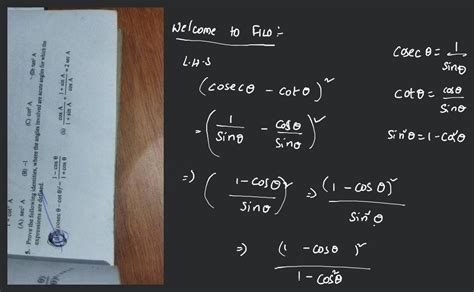 1 + cot² A
(A) sec² A (B) –1 (C) cot² A (D) tan² A
5. Prove the following identities, where the angles involved are acute angles for which the
expressions are defined.
(cosec θ – cot θ)² = 1 – cos θ / 1 + cos θ (ii) cos A / 1 + sin A + 1 + sin A / cos A = 2 sec A
Welcome to Filo :-
L.H.S
(cosec θ - cot θ)²
= (1/sinθ - cosθ/sinθ)²
=) (1 - cosθ / sinθ)² => (1 - cosθ)² / sin²θ
=) (1 - cosθ)² / 1 - cos²θ
cosec θ = 1/sinθ
cot θ = cosθ/sinθ
sin²θ = 1 - cos²θ